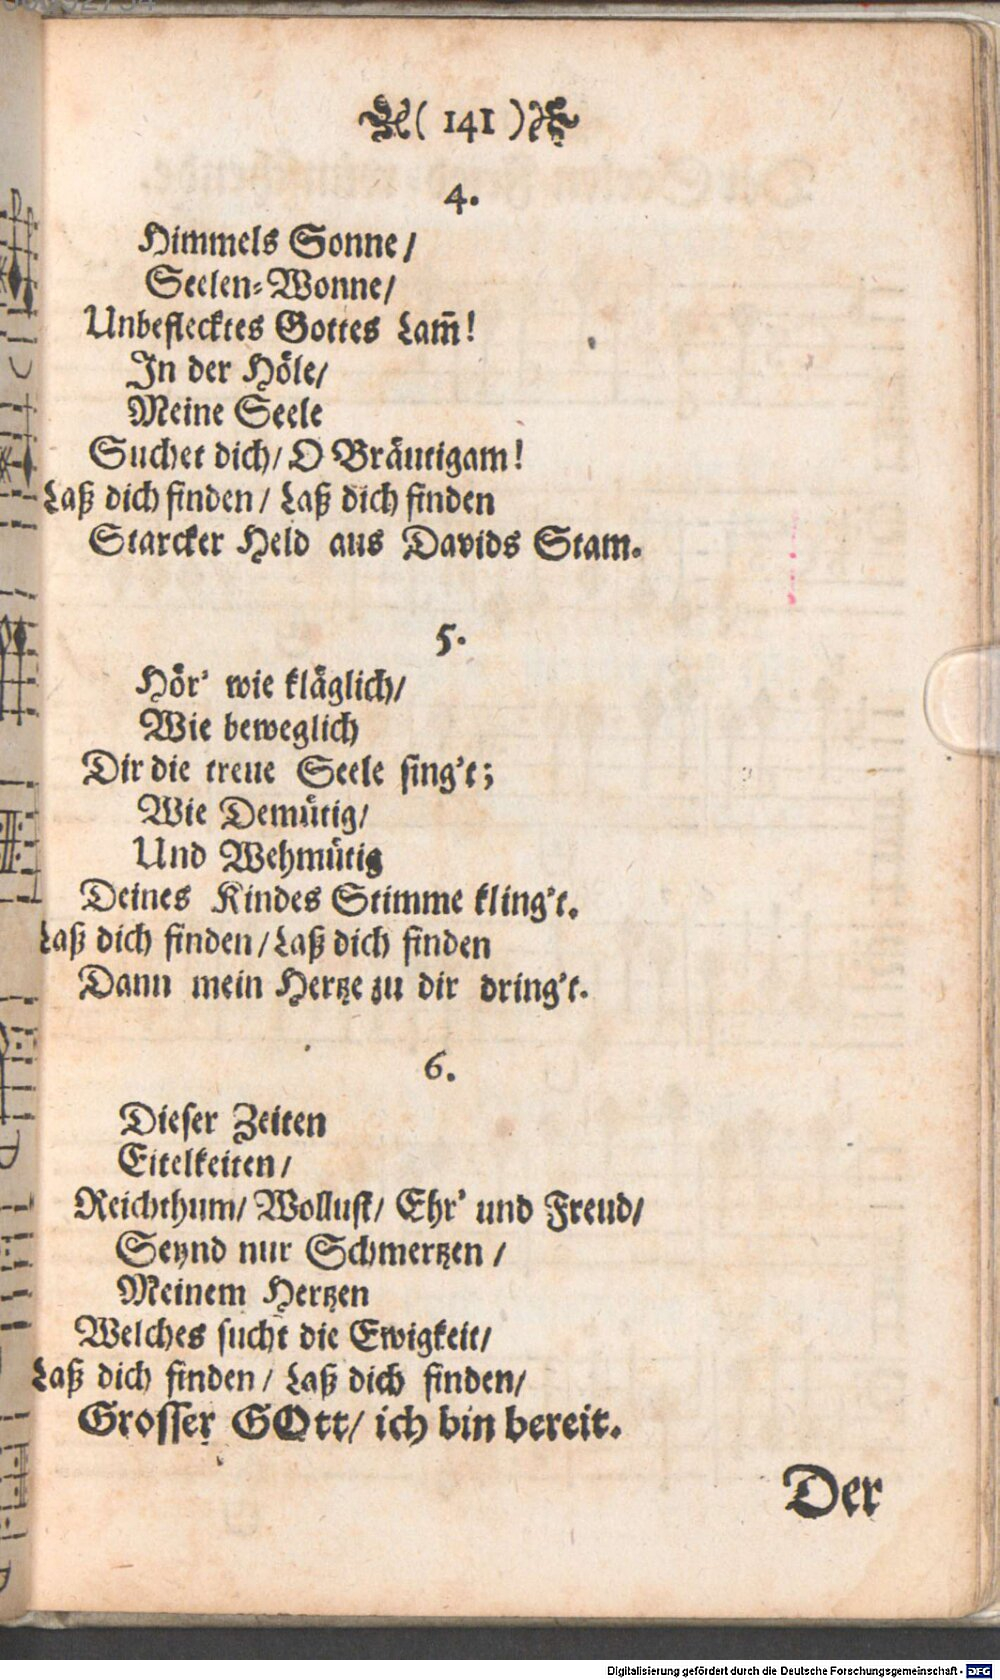 ( 141 )
4.
Himmels Sonne/
Seelen-Wonne/
Unbeflecktes Gottes Lam̄!
In der Höle/
Meine Seele
Suchet dich/ O Bräutigam!
Laß dich finden/ Laß dich finden
Starcker Held aus Davids Stam.
5.
Hör' wie kläglich/
Wie beweglich
Dir die treue Seele sing't;
Wie Demütig/
Und Wehmütig
Deines Kindes Stimme kling't.
Laß dich finden/ Laß dich finden
Dann mein Hertze zu dir dring't.
6.
Dieser Zeiten
Eitelkeiten/
Reichthum/ Wollust/ Ehr' und Freud/
Seynd nur Schmertzen/
Meinem Hertzen
Welches sucht die Ewigkeit/
Laß dich finden/ Laß dich finden/
Grosser GOtt/ ich bin bereit.
Der
Digitalisierung gefördert durch die Deutsche Forschungsgemeinschaft - DFG